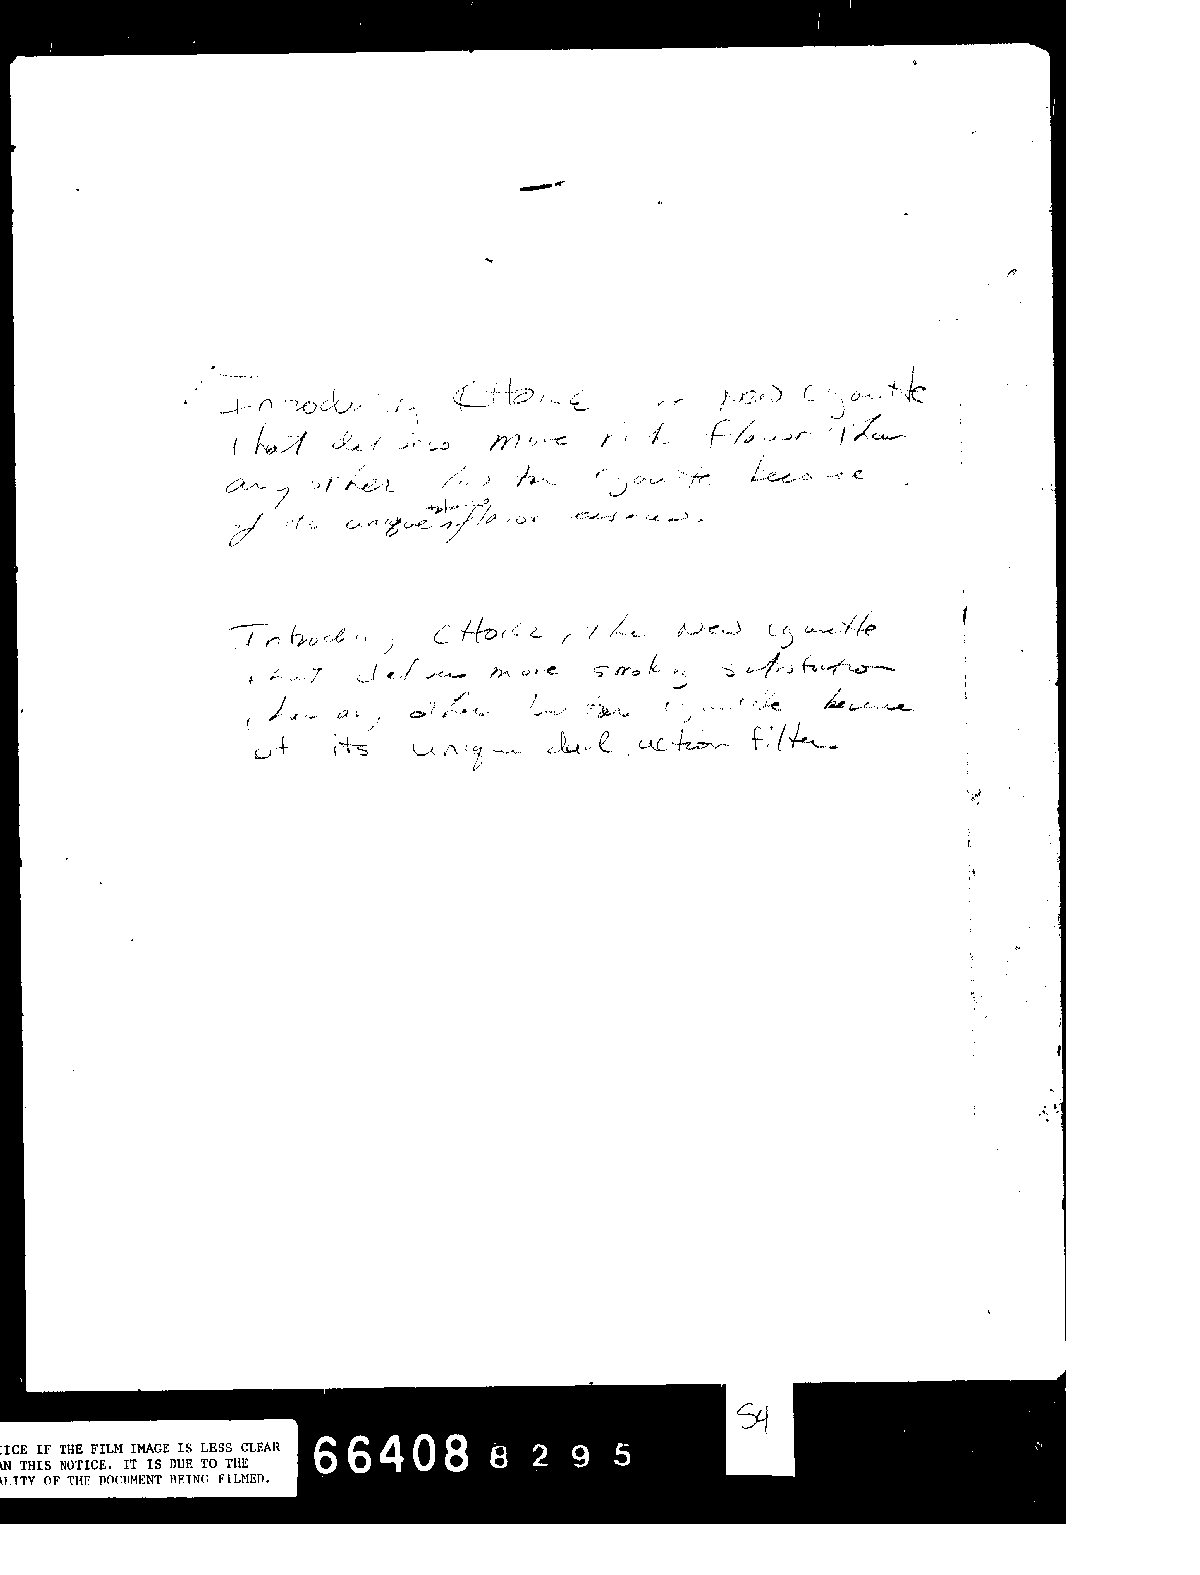 Introducing CHOICE, a new cigarette
that delivers more rich flavor than
any other low tar cigarette because
of its unique flavor
Introducing CHOICE, the new cigarette
that delivers more smoking satisfaction
than any other low tar cigarette because
of its unique dual action filter.
S4
ICE IF THE FILM IMAGE IS LESS CLEAR
AN THIS NOTICE. IT IS DUE TO THE
ALITY OF THE DOCUMENT BEING FILMED.
66408 8295